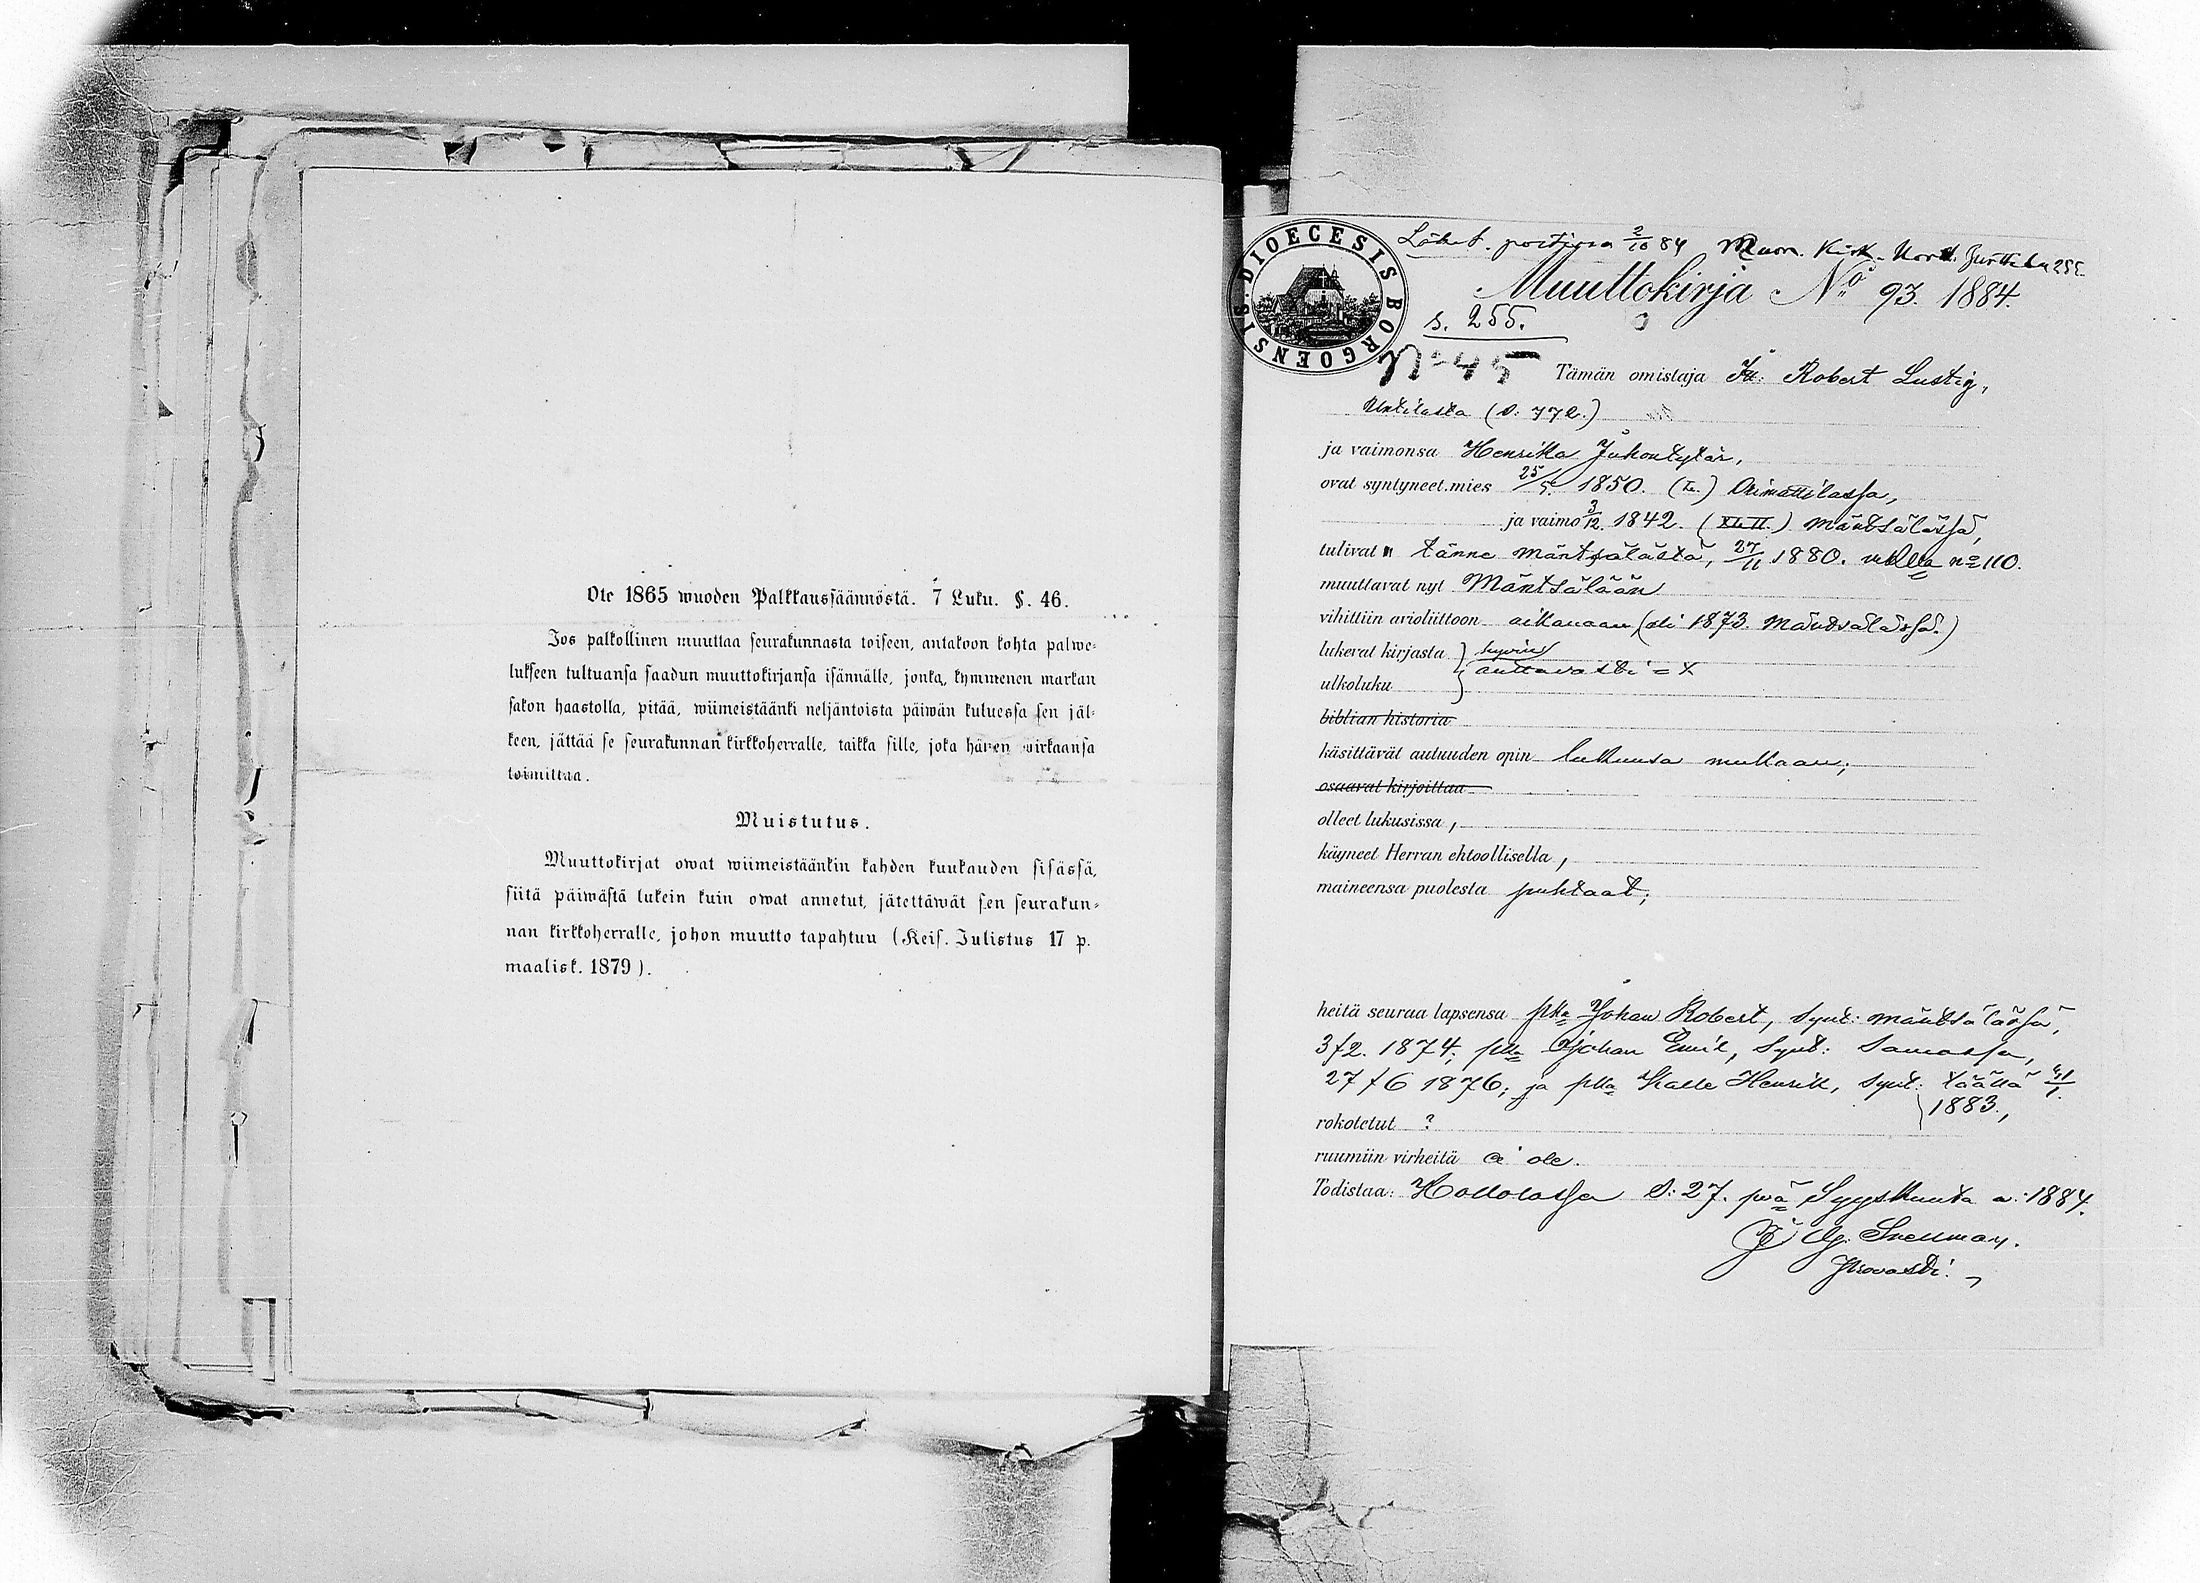 Ote 1865 wuoden Palkkaussäännöstä. 7 Luku. §. 46.
Jos palkollinen muuttaa seurakunnasta toiseen, antakoon kohta palwe-
lukseen tultuansa saadun muuttokirjansa isännälle, jonka, kymmenen markan
sakon haastolla, pitää, wiimeistäänki neljäntoista päiwän kuluessa sen jäl-
keen, jättää se seurakunnan kirkkoherralle, taikka sille, joka hänen wirkaansa
toimittaa.
Muistutus.
Muuttokirjat owat wiimeistäänkin kahden kuukauden sisässä,
siitä päiwästä lukein kuin owat annetut, jätettäwät sen seurakun-
nan kirkkoherralle, johon muutto tapahtuu (Keis. Julistus 17 p.
maalisk. 1879).
SIG. DIOECESIS BORGOENSIS
Lähet. postissa 2/10 84
Muuttokirja No 93. 1884.
s. 255.
No 45
Tämän omistaja Robert Lustig,
(s. 772.)
ja vaimonsa Henrika Juhontytär,
ovat syntyneet mies 25/5 1850. Orimattilassa,
ja vaimo 3/12 1842. (XLII) Mäntsälässä,
tulivat tänne Mäntsälästä, 27/11 1880. no 110.
muuttavat nyt Mäntsälään
vihittiin avioliittoon aikanaan, (oli 1873. Mäntsälässä.)
lukevat kirjasta hyvin
auttavasti = x
ulkoluku
biblian historia
käsittävät autuuden opin lukunsa mukaan;
osaavat kirjoittaa
olleet lukusissa,
käyneet Herran ehtoollisella,
maineensa puolesta puhtaat;
heitä seuraa lapsensa pka Johan Robert, synt: Mäntsälässä,
3/2. 1874; pka Johan Emil, synt: samassa,
27/6 1876; ja pka Kalle Henrik, synt: täällä
1883.,
rokotetut ?
ruumiin virheitä ei ole.
Todistaa: Hollolassa s: 27. pvä Syyskuuta a: 1884.
G. Snellman.
Provasti.